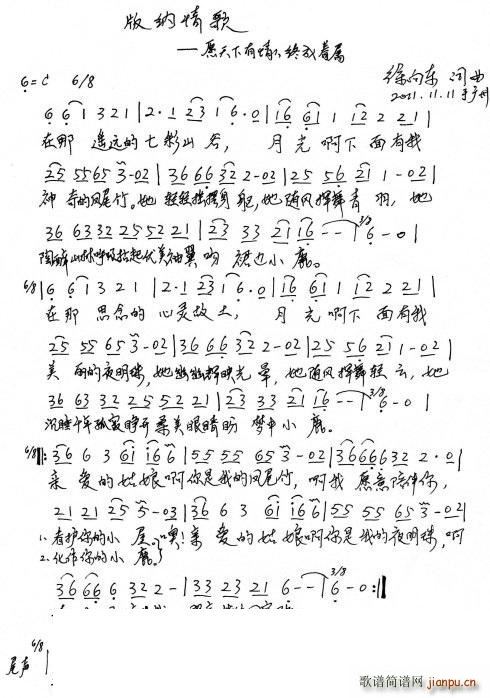 版纳情歌
——愿天下有情人终成眷属
6=C 6/8
徐向东 词曲
2011.11.11于广州
6 6 1 3 2 1 | 2 · 1 2 3 1 6 · 0 | 1 6 6 1 1 1 2 2 2 1 |
在那 遥远的 七彩山谷, 月光啊下面有我
2 5 5 5 6 5 3 - 0 2 | 3 6 6 6 3 2 2 - 0 2 | 2 5 5 6 2 1 1 - 0 2 |
神奇的凤尾竹。她 轻轻 身躯,她随风挥舞青羽,她
3 6 6 3 3 2 2 5 5 2 2 1 | 2 3 3 3 2 1 1 6 - - | 3/8 6 - 0 |
陶醉山林呼吸 起伏美 翼 裙边小鹿。
6/8 | 6 6 1 3 2 1 | 2 · 1 2 3 1 6 · 0 | 1 6 6 1 1 1 2 2 2 1 |
在那 思念的 心灵故土, 月光啊下面有我
2 5 5 5 6 5 3 - 0 2 | 3 6 6 6 3 2 2 - 0 2 | 2 5 5 6 2 1 1 - 0 2 |
美丽的夜明珠,她幽幽辉映光晕,她随风挥舞轻云,她
3 6 6 3 3 2 2 5 5 2 2 1 | 2 3 3 3 2 1 1 6 - - | 3/8 6 - 0 |
沉睡千年孤寂睁开柔美眼睛盼 梦中小鹿。
6/8 ‖: 3 6 6 3 6 1 1 6 6 | 5 5 5 5 6 5 3 - 0 2 | 3 6 6 6 6 3 2 2 · 0 |
亲爱的姑娘啊你是我的凤尾竹,啊我愿意陪伴你,
2 1 2 1 2 5 5 - 0 3 | 3 6 6 3 6 1 1 6 6 | 5 5 5 5 6 5 3 - 0 2 |
1. 看护你的小屋。噢!亲爱的姑娘啊你是我的夜明珠,啊
2. 化作你的小鹿。
3 6 6 6 6 3 2 2 - | 3 3 2 3 2 1 6 - - | 3/8 6 - 0 :‖
6/8
尾声
歌谱简谱网
jianpu.cn